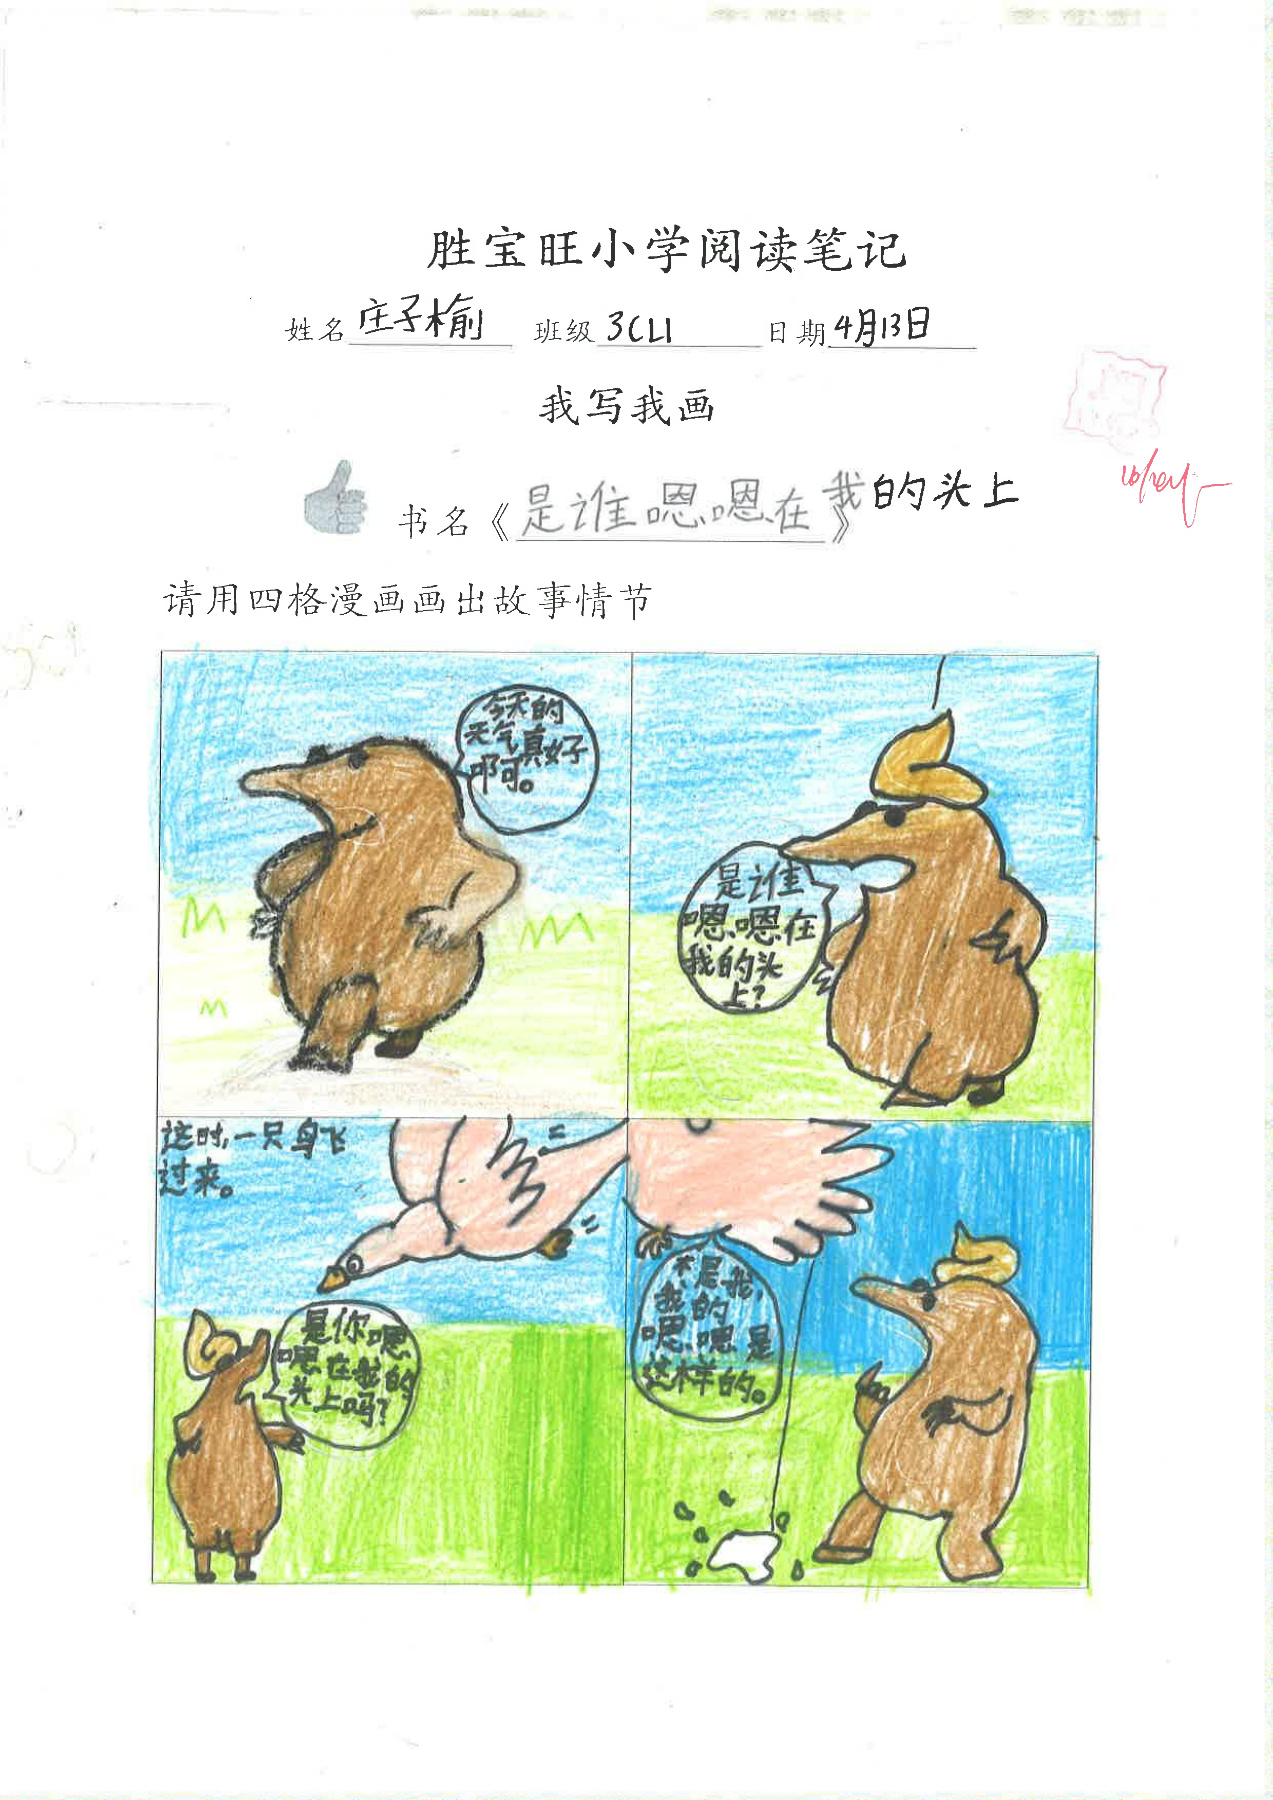 胜宝旺小学阅读笔记
姓名 庄子榆 班级 3CL1 日期 4月13日
我写我画
书名《是谁嗯嗯在我的头上》
请用四格漫画画出故事情节
今天的
天气真好
啊。
是谁
嗯嗯在
我的头
上？
这时，一只鸟飞
过来。
是你嗯
嗯在我的
头上吗？
不是我，
我的
嗯嗯是
这样的。